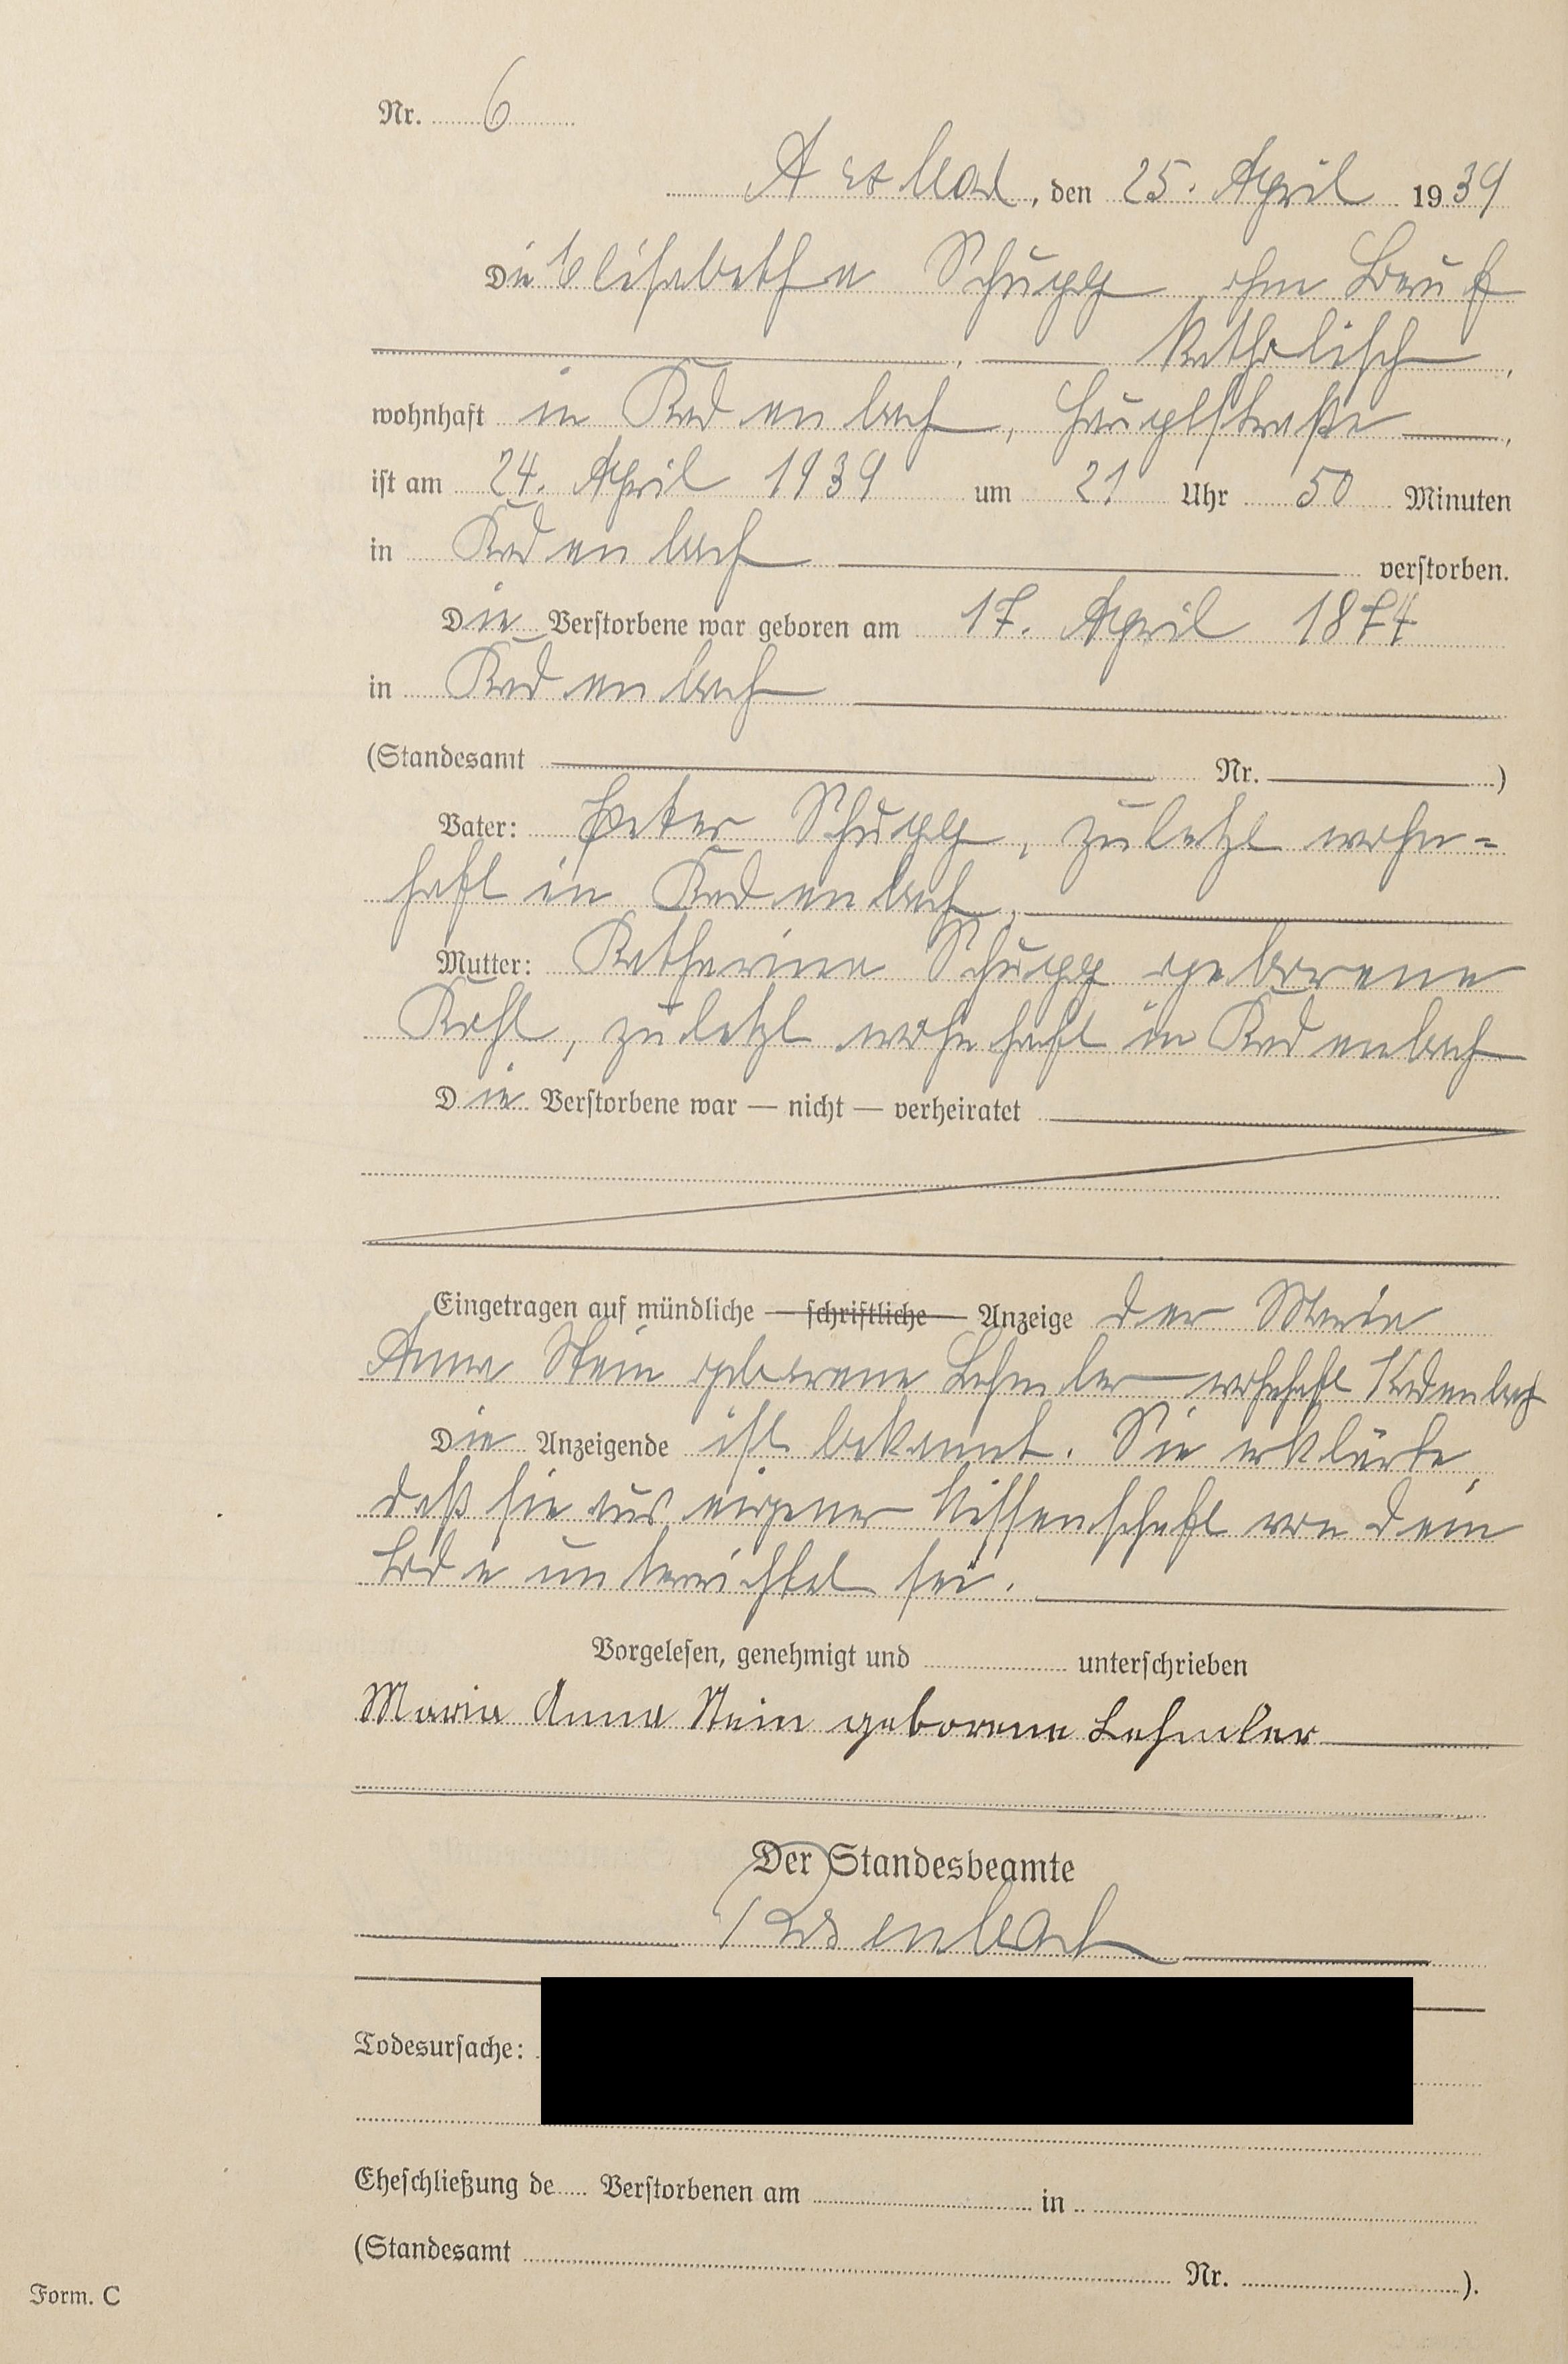 Nr. 6
Arzbach, den 25. April 1939
Die Elisabetha Schupp ohne Beruf
, katholisch,
wohnhaft in Kadenbach, Hauptstraße,
ist am 24. April 1939 um 21 Uhr 50 Minuten
in Kadenbach verstorben.
Die Verstorbene war geboren am 17. April 1874
in Kadenbach
(Standesamt Nr. )
Vater: Peter Schupp, zuletzt wohn-
haft in Kadenbach.
Mutter: Katharina Schupp geborene
Kohl, zuletzt wohnhaft in Kadenbach
Die Verstorbene war — nicht — verheiratet
Eingetragen auf mündliche — schriftliche — Anzeige der Maria
Anna Stein geborene Lehmler wohnhaft Kadenbach
Die Anzeigende ist bekannt. Sie erklärte,
daß sie aus eigener Wissenschaft von dem
Tode unterrichtet sei.
Vorgelesen, genehmigt und unterschrieben
Maria Anna Stein geborene Lehmler
Der Standesbeamte
Kadenbach
Todesursache:
Eheschließung de Verstorbenen am in
(Standesamt Nr. ).
Form. C